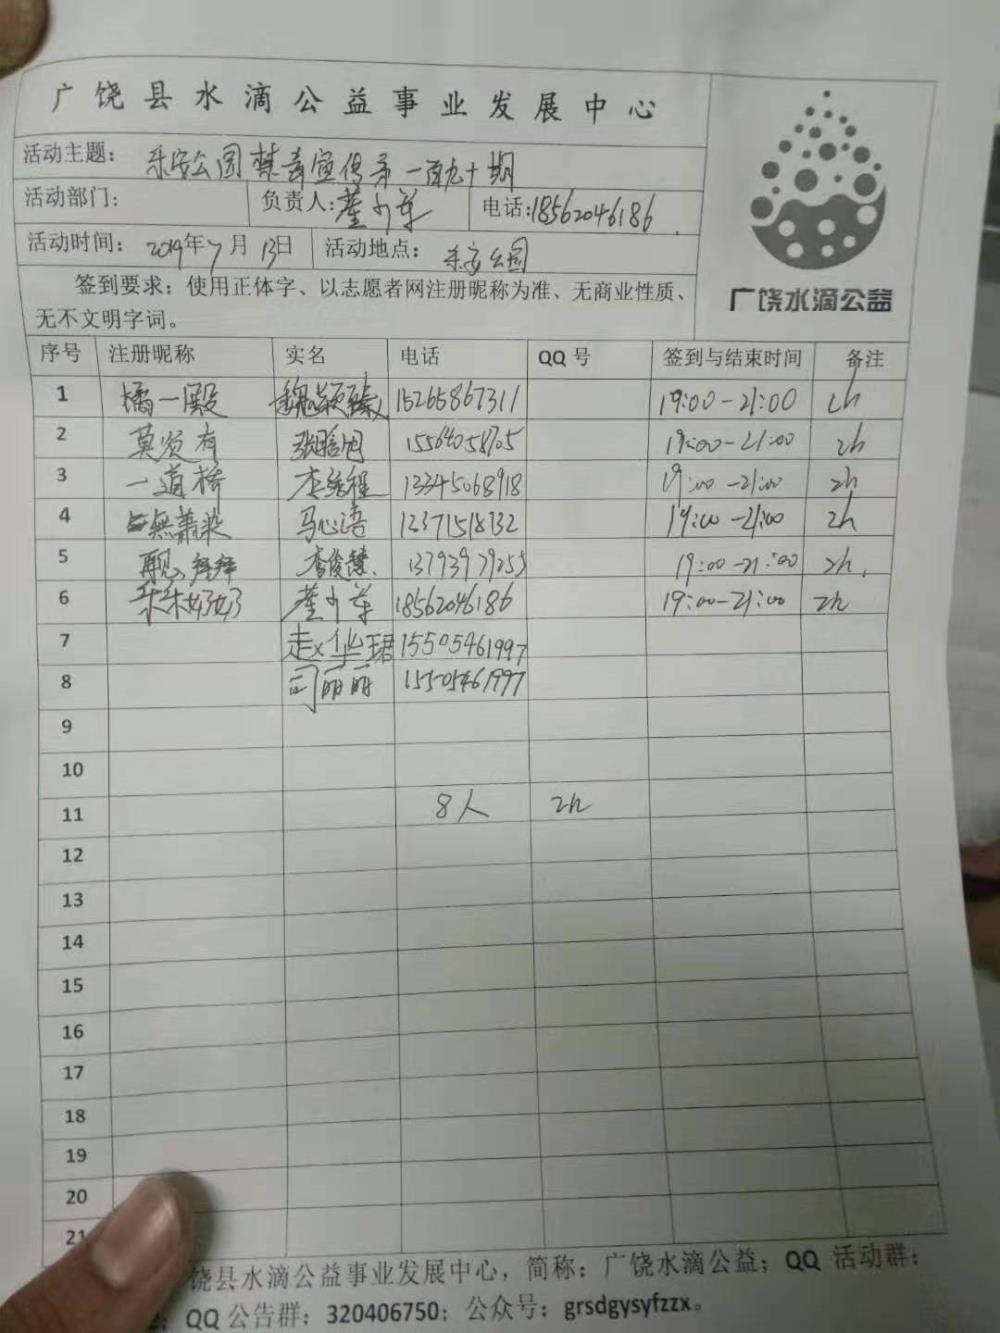 广饶县水滴公益事业发展中心
活动主题: 乐安公园禁毒宣传第一百九十期
活动部门: 负责人: 董少草 电话: 18562046186
活动时间: 2019年7月13日 活动地点: 乐安公园
广饶水滴公益
签到要求：使用正体字、以志愿者网注册昵称为准、无商业性质、
无不文明字词。
序号 注册昵称 实名 电话 QQ 号 签到与结束时间 备注
1 橘一殿 15265867311 19:00-21:00 2h
2 莫须有 15564058705 19:00-21:00 2h
3 一道桥 13345068918 19:00-21:00 2h
4 無萧染 马心语 12371518732 19:00-21:00 2h
5 李俊慧 13793979255 19:00-21:00 2h.
6 董少草 18562046186 19:00-21:00 2h
7 走x华珺 15505461997
8 司丽丽 15505461997
9
10
11 8人 2h
12
13
14
15
16
17
18
19
20
21
饶县水滴公益事业发展中心，简称：广饶水滴公益；QQ 活动群：
QQ 公告群：320406750；公众号：grsdgysyfzzx。